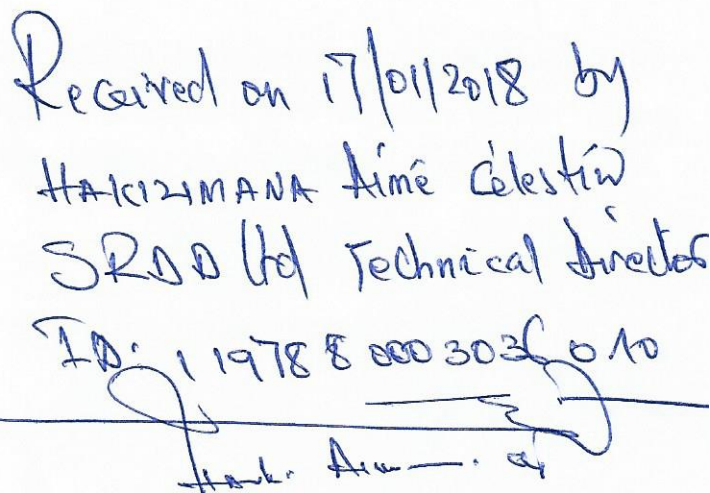 Received on 17/01/2018 by
HAKIZIMANA Aimé Célestin
SRDD Ltd Technical Director
ID: 1 1978 8 000 303 010